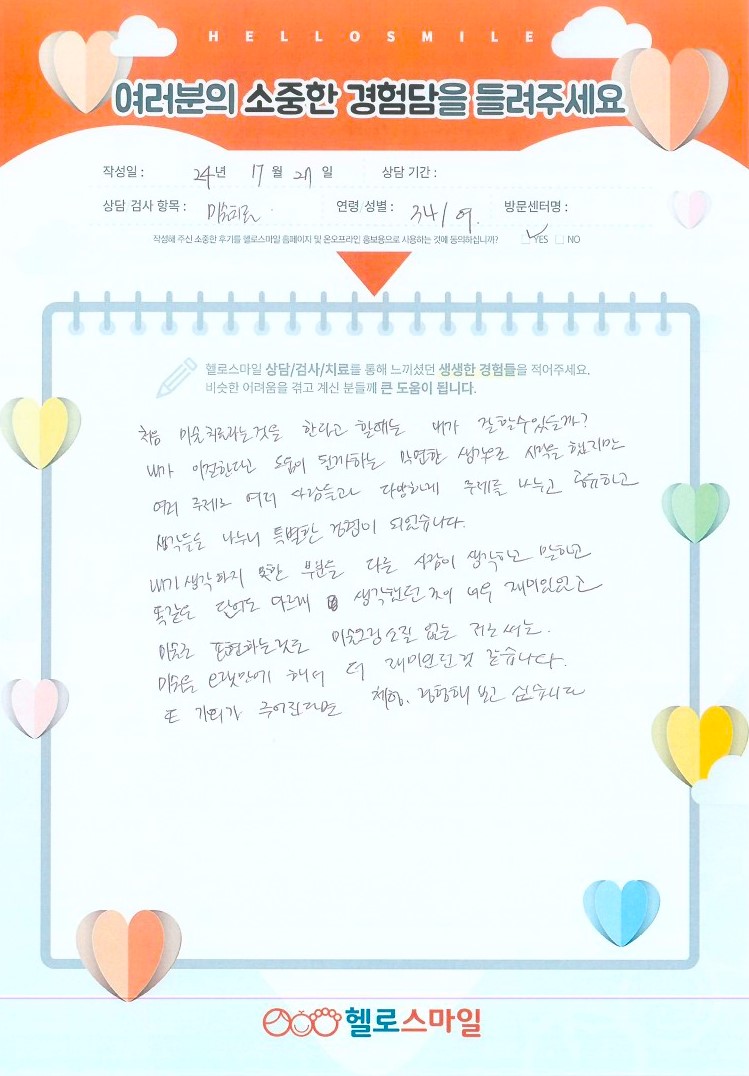 HELLOSMILE
여러분의 소중한 경험담을 들려주세요
작성일 : 24년 17월 21일 상담 기간 :
상담 검사 항목 : 미술치료 연령 성별 : 34/여. 방문센터명 :
작성해 주신 소중한 후기를 헬로스마일 홈페이지 및 온오프라인 홍보용으로 사용하는 것에 동의하십니까? YES NO
헬로스마일 상담/검사/치료를 통해 느끼셨던 생생한 경험들을 적어주세요.
비슷한 어려움을 겪고 계신 분들께 큰 도움이 됩니다.
처음 미술치료라는것을 한다고 할때는 내가 잘할수있을까?
내가 이걸한다고 도움이 될까하는 막연한 생각으로 시작을 했지만
여러 주제로 여러 사람들과 다양하게 주제를 나누고 공유하고
생각들을 나누니 특별한 경험이 되었습니다.
내가 생각하지 못한 부분들을 다른 사람이 생각하고 말하고
똑같은 단어도 다르게 생각했던 것이 너무 재미있었고
미술로 표현하는것도 미술그림소질 없는 저로써는.
미술을 오랫만에 해서 더 재미있던것 같습니다.
또 기회가 주어진다면 체험, 경험해 보고 싶습니다
헬로스마일